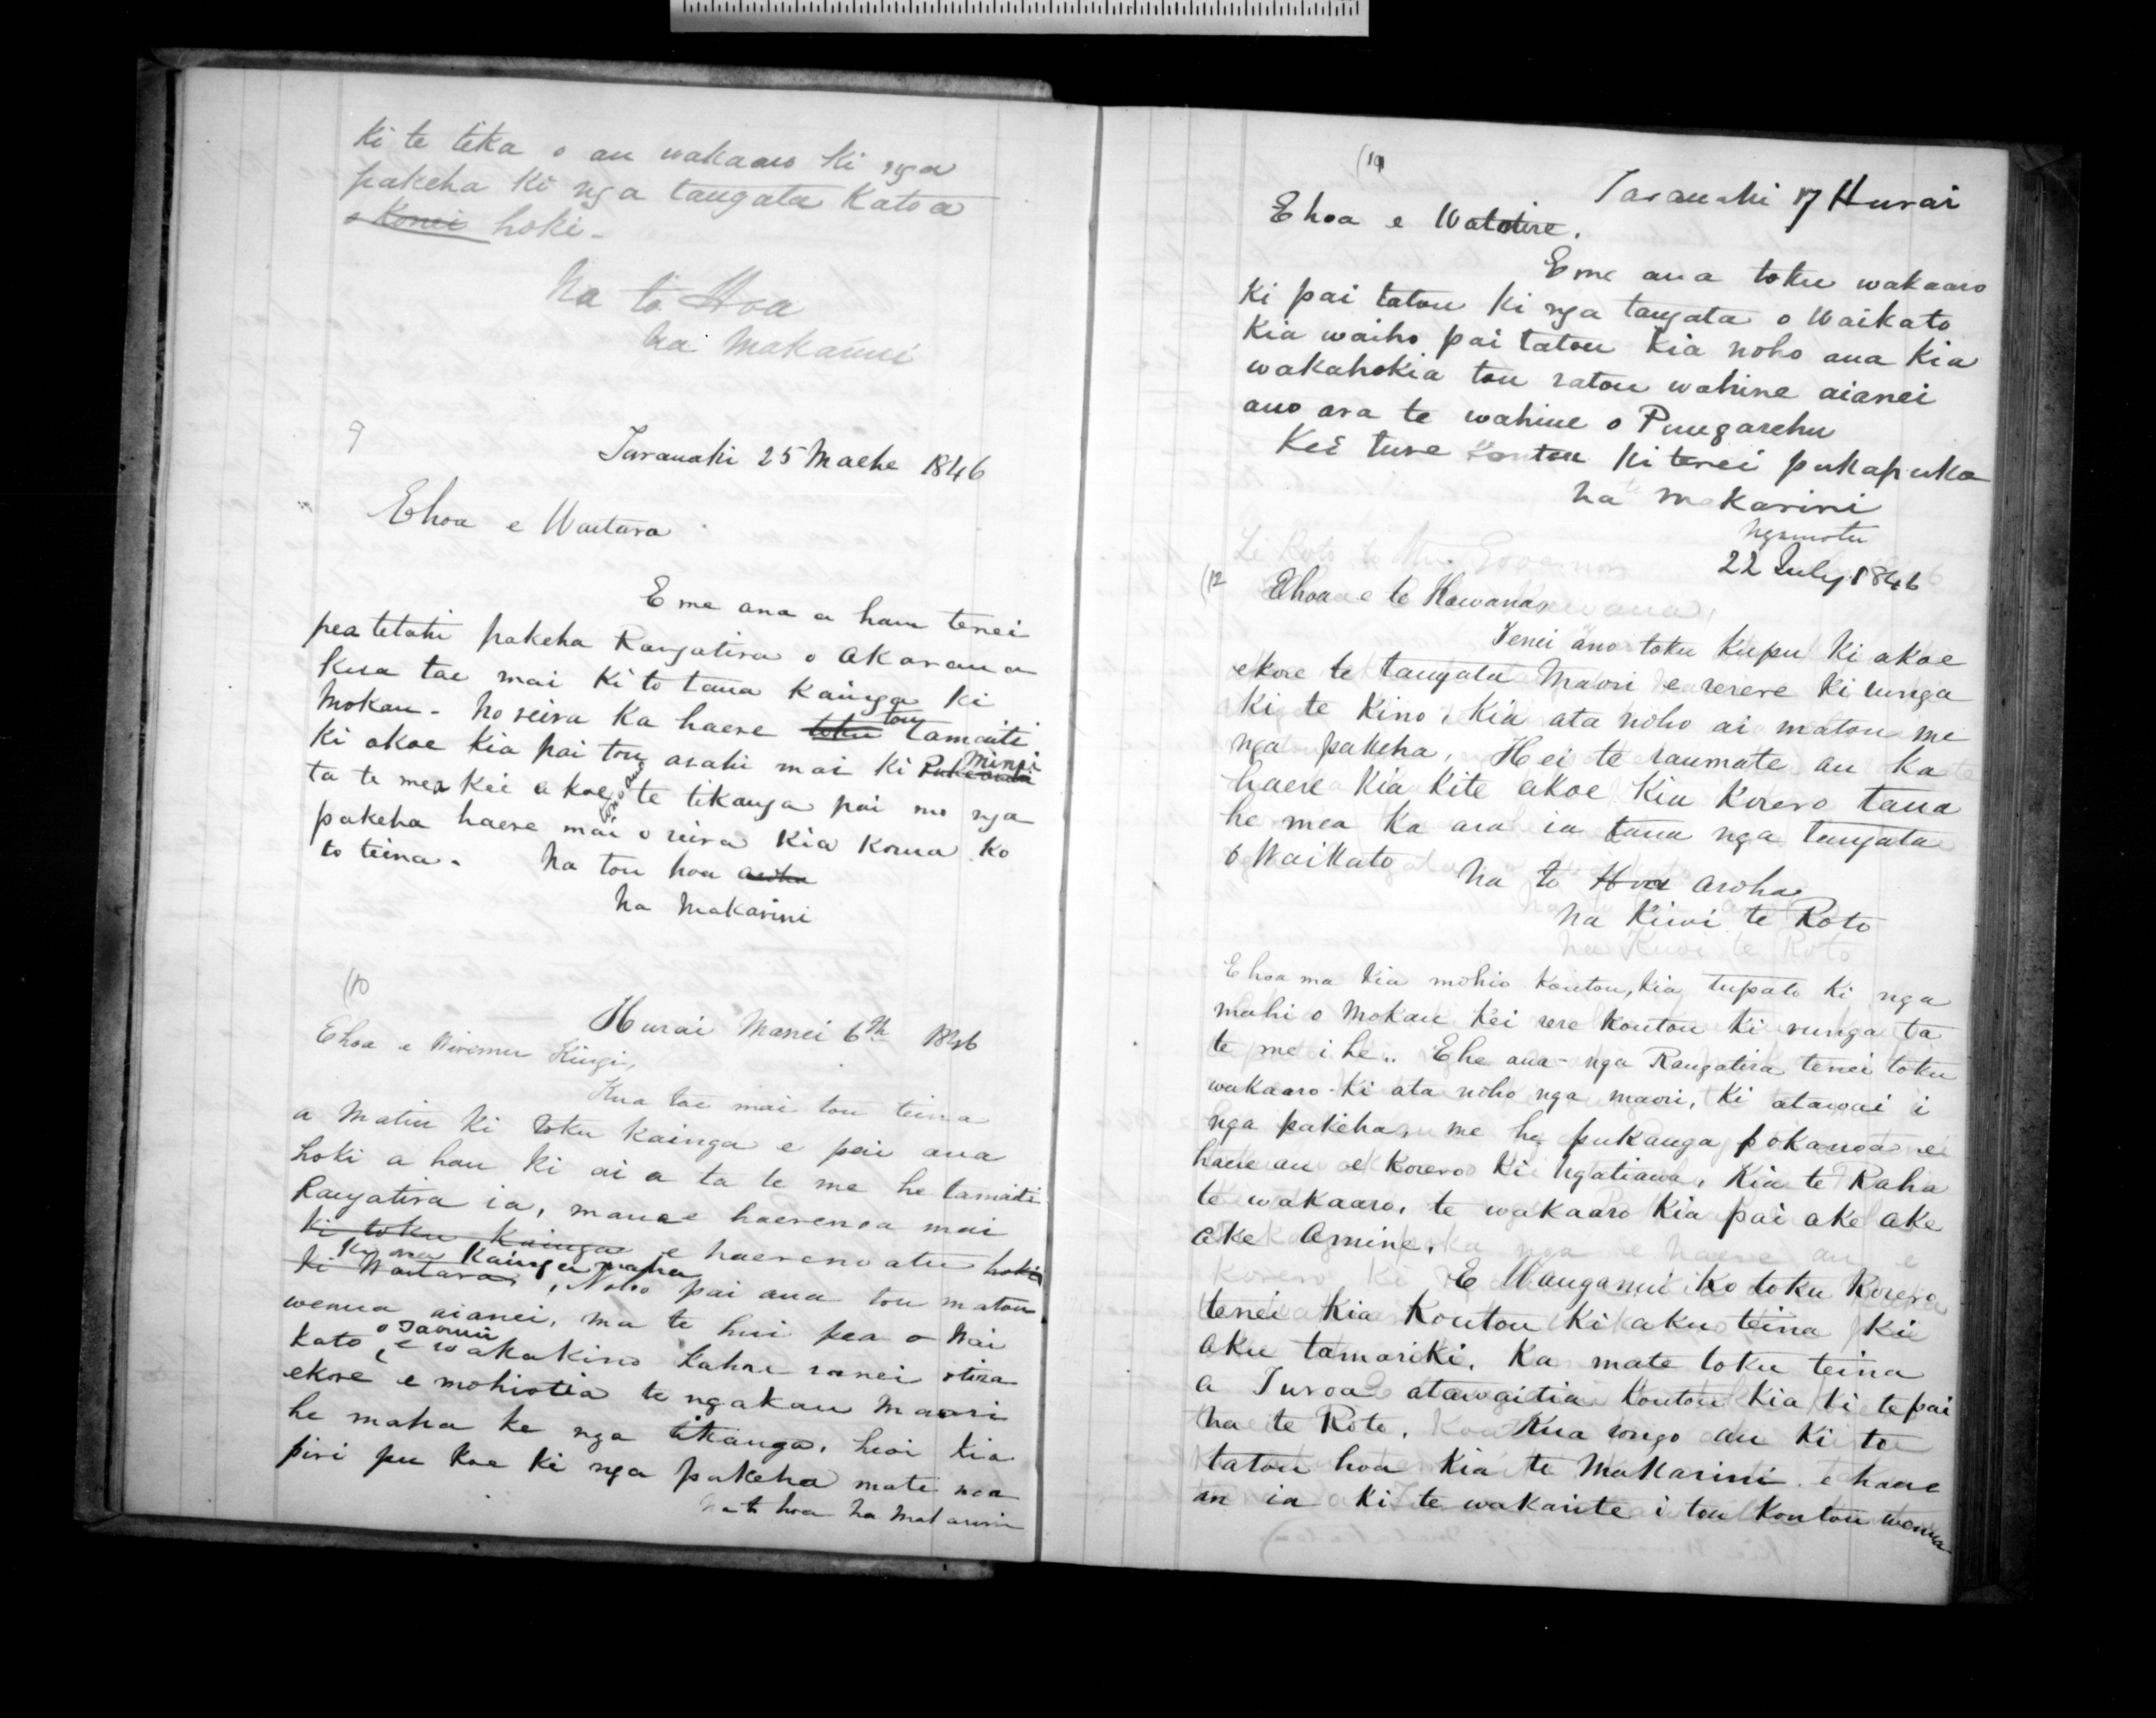 Ki te tika o au wakaaro ki nga
pakeha ki nga tangata katoa
o Konei hoki -
Na to Hoa
Na Makarini
9
Taranaki 25 Maehe 1846
Ehoa e Waitara
E mea ana a hau tenei
pea tetahi pakeha Rangatira o Akarana
kua tae mai ki to taua kainga ki
Mokau - No reira ka haere toku tou tamaiti
ki akoe kia pai tou arahi mai ki
ta te mea kei a koe te tikanga pai mo nga
pakeha haere mai o reira kia korua ko
to teina. Na tou hoa aroha
Na Makarini
(10
Hurai Manei 6th 1846
Ehoa e Wiremu Kingi,
Kua tae mai tou teina
a Matiu ki toku kainga e pai ana
hoki a hau ki ai a ta te me he tamaiti
Rangatira ia, mana e haerenoa mai
ki toku kainga e haerenoatu hoki
kainga
ki Waitara, Noho pai ana tou matou
wenua aianei, ma te hui pea o Wai
kato e wakakino kahore ranei otira
ekore e mohiotia te ngakau Maori
he maha ke nga tikanga, heoi kia
piri pu koe ki nga pakeha mate noa
Na to hoa Na Makarini
Taranaki 17 Hurai
Ehoa e
E me ana toku wakaaro
ki pai tatou ki nga tangata o Waikato
kia waiho pai tatou kia noho ana kia
wakahokia tou ratou wahine aianei
ano ara te wahine o Pungarehu
Kei ture koutou ki tenei pukapuka
Na te Makarini
Ngamotu
22 July 1846
(12
Ehoa e te Kawana
Tenei ano toku kupu ki akoe
ekore te tangata Maori e rerere ki runga
ki te kino, kia ata noho ai matou me
nga pakeha, Hei te raumate au ka
haere kia kite akoe kia korero taua
he mea ka ara ia taua nga tangata
o Waikato
Na to Hoa aroha
Na Kiwi te Roto
Ehoa ma kia mohio koutou, kia tupato ki nga
mahi o Mokau kei rere koutou ki runga ta
te me i he.. Ehe ana - nga Rangatira tenei toku
wakaaro - ki ata noho nga maori, ki atawai i
nga pakeha, me he pukanga pokanoa nei
haere au e korero ki Ngatiawa, kia te Raha
te wakaaro, te wakaaro kia pai ake ake
ake Amine.
E Wanganui ko toku korero
tenei kia koutou ki aku teina ki
aku tamariki. Ka mate toku teina
a Turoa atawaitia koutou kia ki te pai
na te Roto. Kua rongo au ki to
tatou hoa kia te Makarini e haere
an ia ki te wakarite i tou koutou wenua